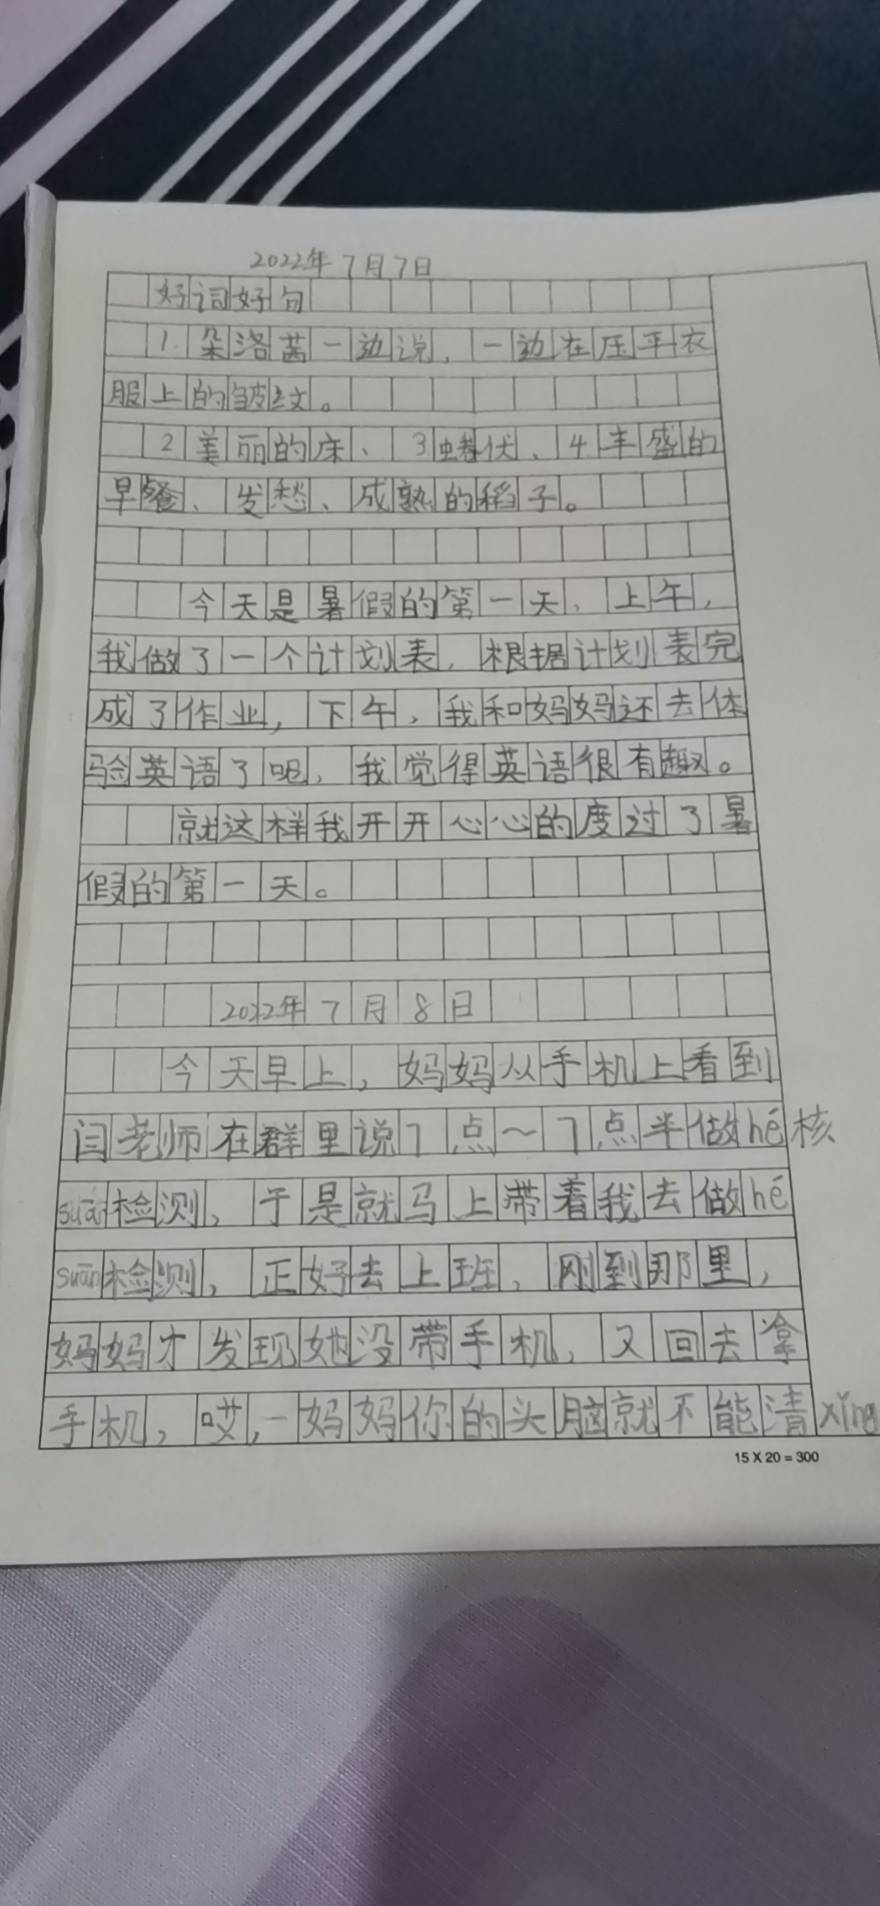 2022年7月7日
好词好句
1.朵洛茜一边说,一边在压平衣
服上的皱纹。
2美丽的床、3.蜷伏、4.丰盛的
早餐、发愁、成熟的稻子。
今天是暑假的第一天,上午,
我做了一个计划表,根据计划表完
成了作业,下午,我和妈妈还去体
验英语了呢,我觉得英语很有趣。
就这样我开开心心的度过了暑
假的第一天。
2022年7月8日
今天早上,妈妈从手机上看到
闫老师在群里说7点～7点半做hé核
suān检测,于是就马上带着我去做hé
suān检测,正好去上班,刚到那里,
妈妈才发现她没带手机,又回去拿
手机,哎,一妈妈你的头脑就不能清xǐng
15X20=300